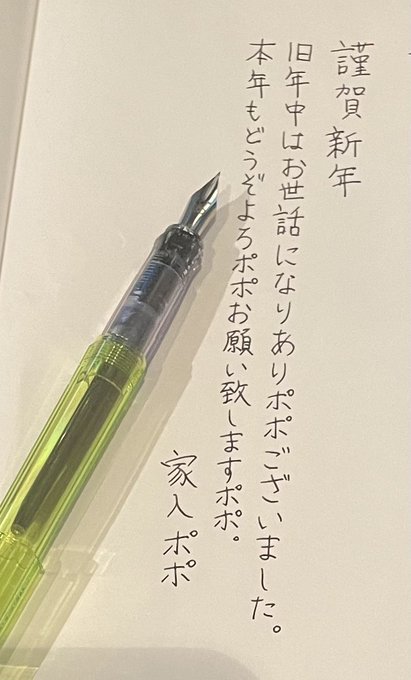 謹賀新年
旧年中はお世話になりありポポございました。
本年もどうぞよろポポお願い致しますポポ。
家入ポポ